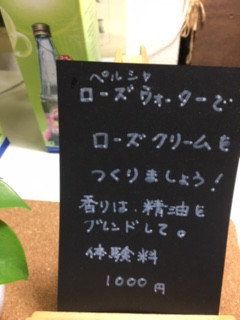 ペルシャ
ローズウォーターで
ローズクリームを
つくりましょう!
香りは、精油を
ブレンドして。
体験料
1000円